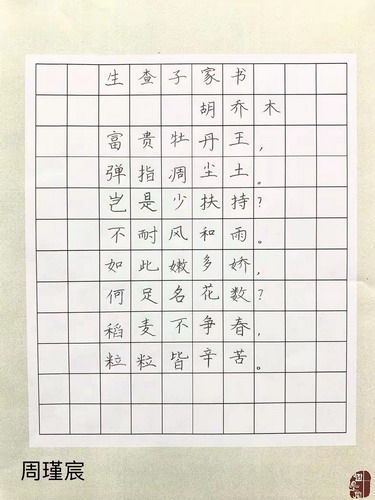 生查子家书
胡乔木
富贵牡丹王，
弹指凋尘土。
岂是少扶持？
不耐风和雨。
如此嫩多娇，
何足名花数？
稻麦不争春，
粒粒皆辛苦。
周瑾宸